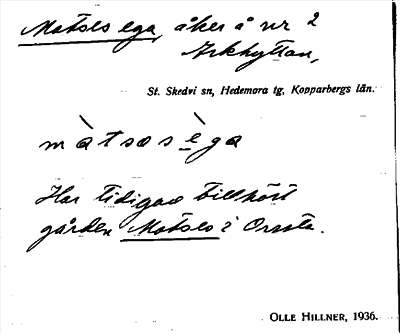 Matses ega, åker å nr 2
Arkhyttan,
St. Skedvi sn, Hedemora tg, Kopparbergs län.
màtsəsèga
Har tidigare tillhört
gården Matses i Orrsta.
OLLE HILLNER, 1936.